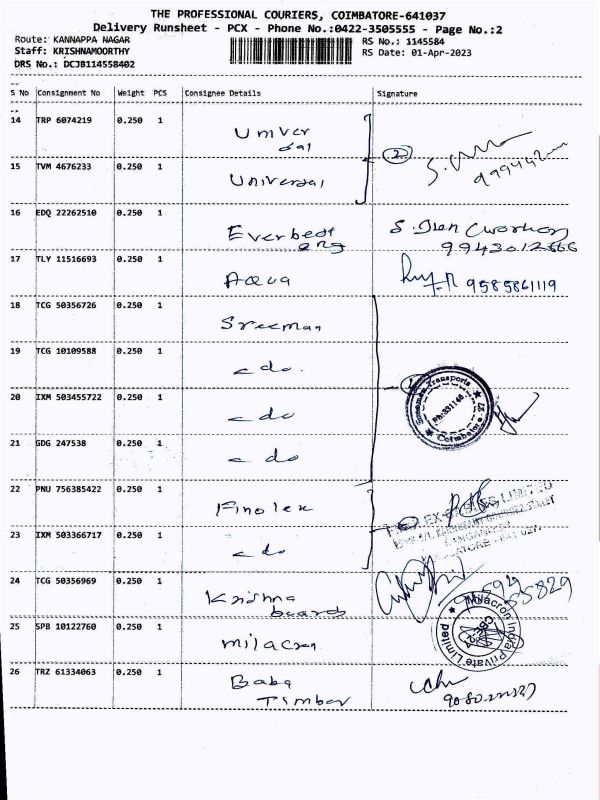 THE PROFESSIONAL COURIERS, COIMBATORE-641037
Delivery Runsheet - PCX - Phone No.:0422-3505555 - Page No.:2
Route: KANNAPPA NAGAR
RS No.: 1145584
Staff: KRISHNAMOORTHY
RS Date: 01-Apr-2023
DRS No.: DCJB114558402
S No Consignment No Weight PCS Consignee Details Signature
14 TRP 6074219 0.250 1 Univer
sal
2
15 TVM 4676233 0.250 1 Universal
16 EDQ 22262510 0.250 1 Everbest
eng
9943012666
17 TLY 11516693 0.250 1 Aqua 9585861119
18 TCG 50356726 0.250 1 Sreeman
19 TCG 10109588 0.250 1 do
20 IXM 503455722 0.250 1 do
21 GDG 247538 0.250 1 do
Transports
Coimbatore
22 PNU 756385422 0.250 1 Finolex
LIMITED
23 IXM 503366717 0.250 1 do
24 TCG 50356969 0.250 1 Krishna
boards
25 SPB 10122760 0.250 1 milacron
Milacron India Private Limited
26 TRZ 61334063 0.250 1 Baba
Timber